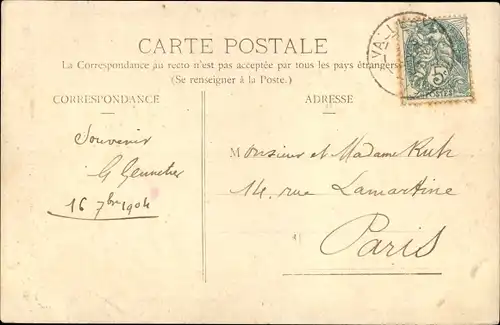 CARTE POSTALE
La Correspondance au recto n'est pas acceptée par tous les pays étrangers
(Se renseigner à la Poste.)
CORRESPONDANCE
ADRESSE
Souvenir
16 7bre 1904
Monsieur et Madame Ruh
14, rue Lamartine
Paris
VALLE
5